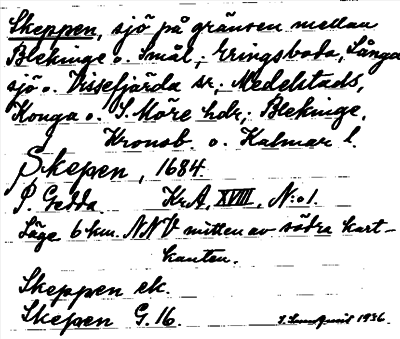 Skeppen, sjö på gränsen mellan
Blekinge o. Smål., Eringsboda, Långa
sjö o. Vissefjärda sr, Medelstads,
Konga o. S. Möre hdr, Blekinge,
Kronob. o. Kalmar l.
Skepen, 1684.
P. Gedda. Kr A. XVIII, N:o 1.
Läge 6 km. NNV mitten av södra kart-
kanten.
Skeppen ek.
Skepen G. 16.
1936.